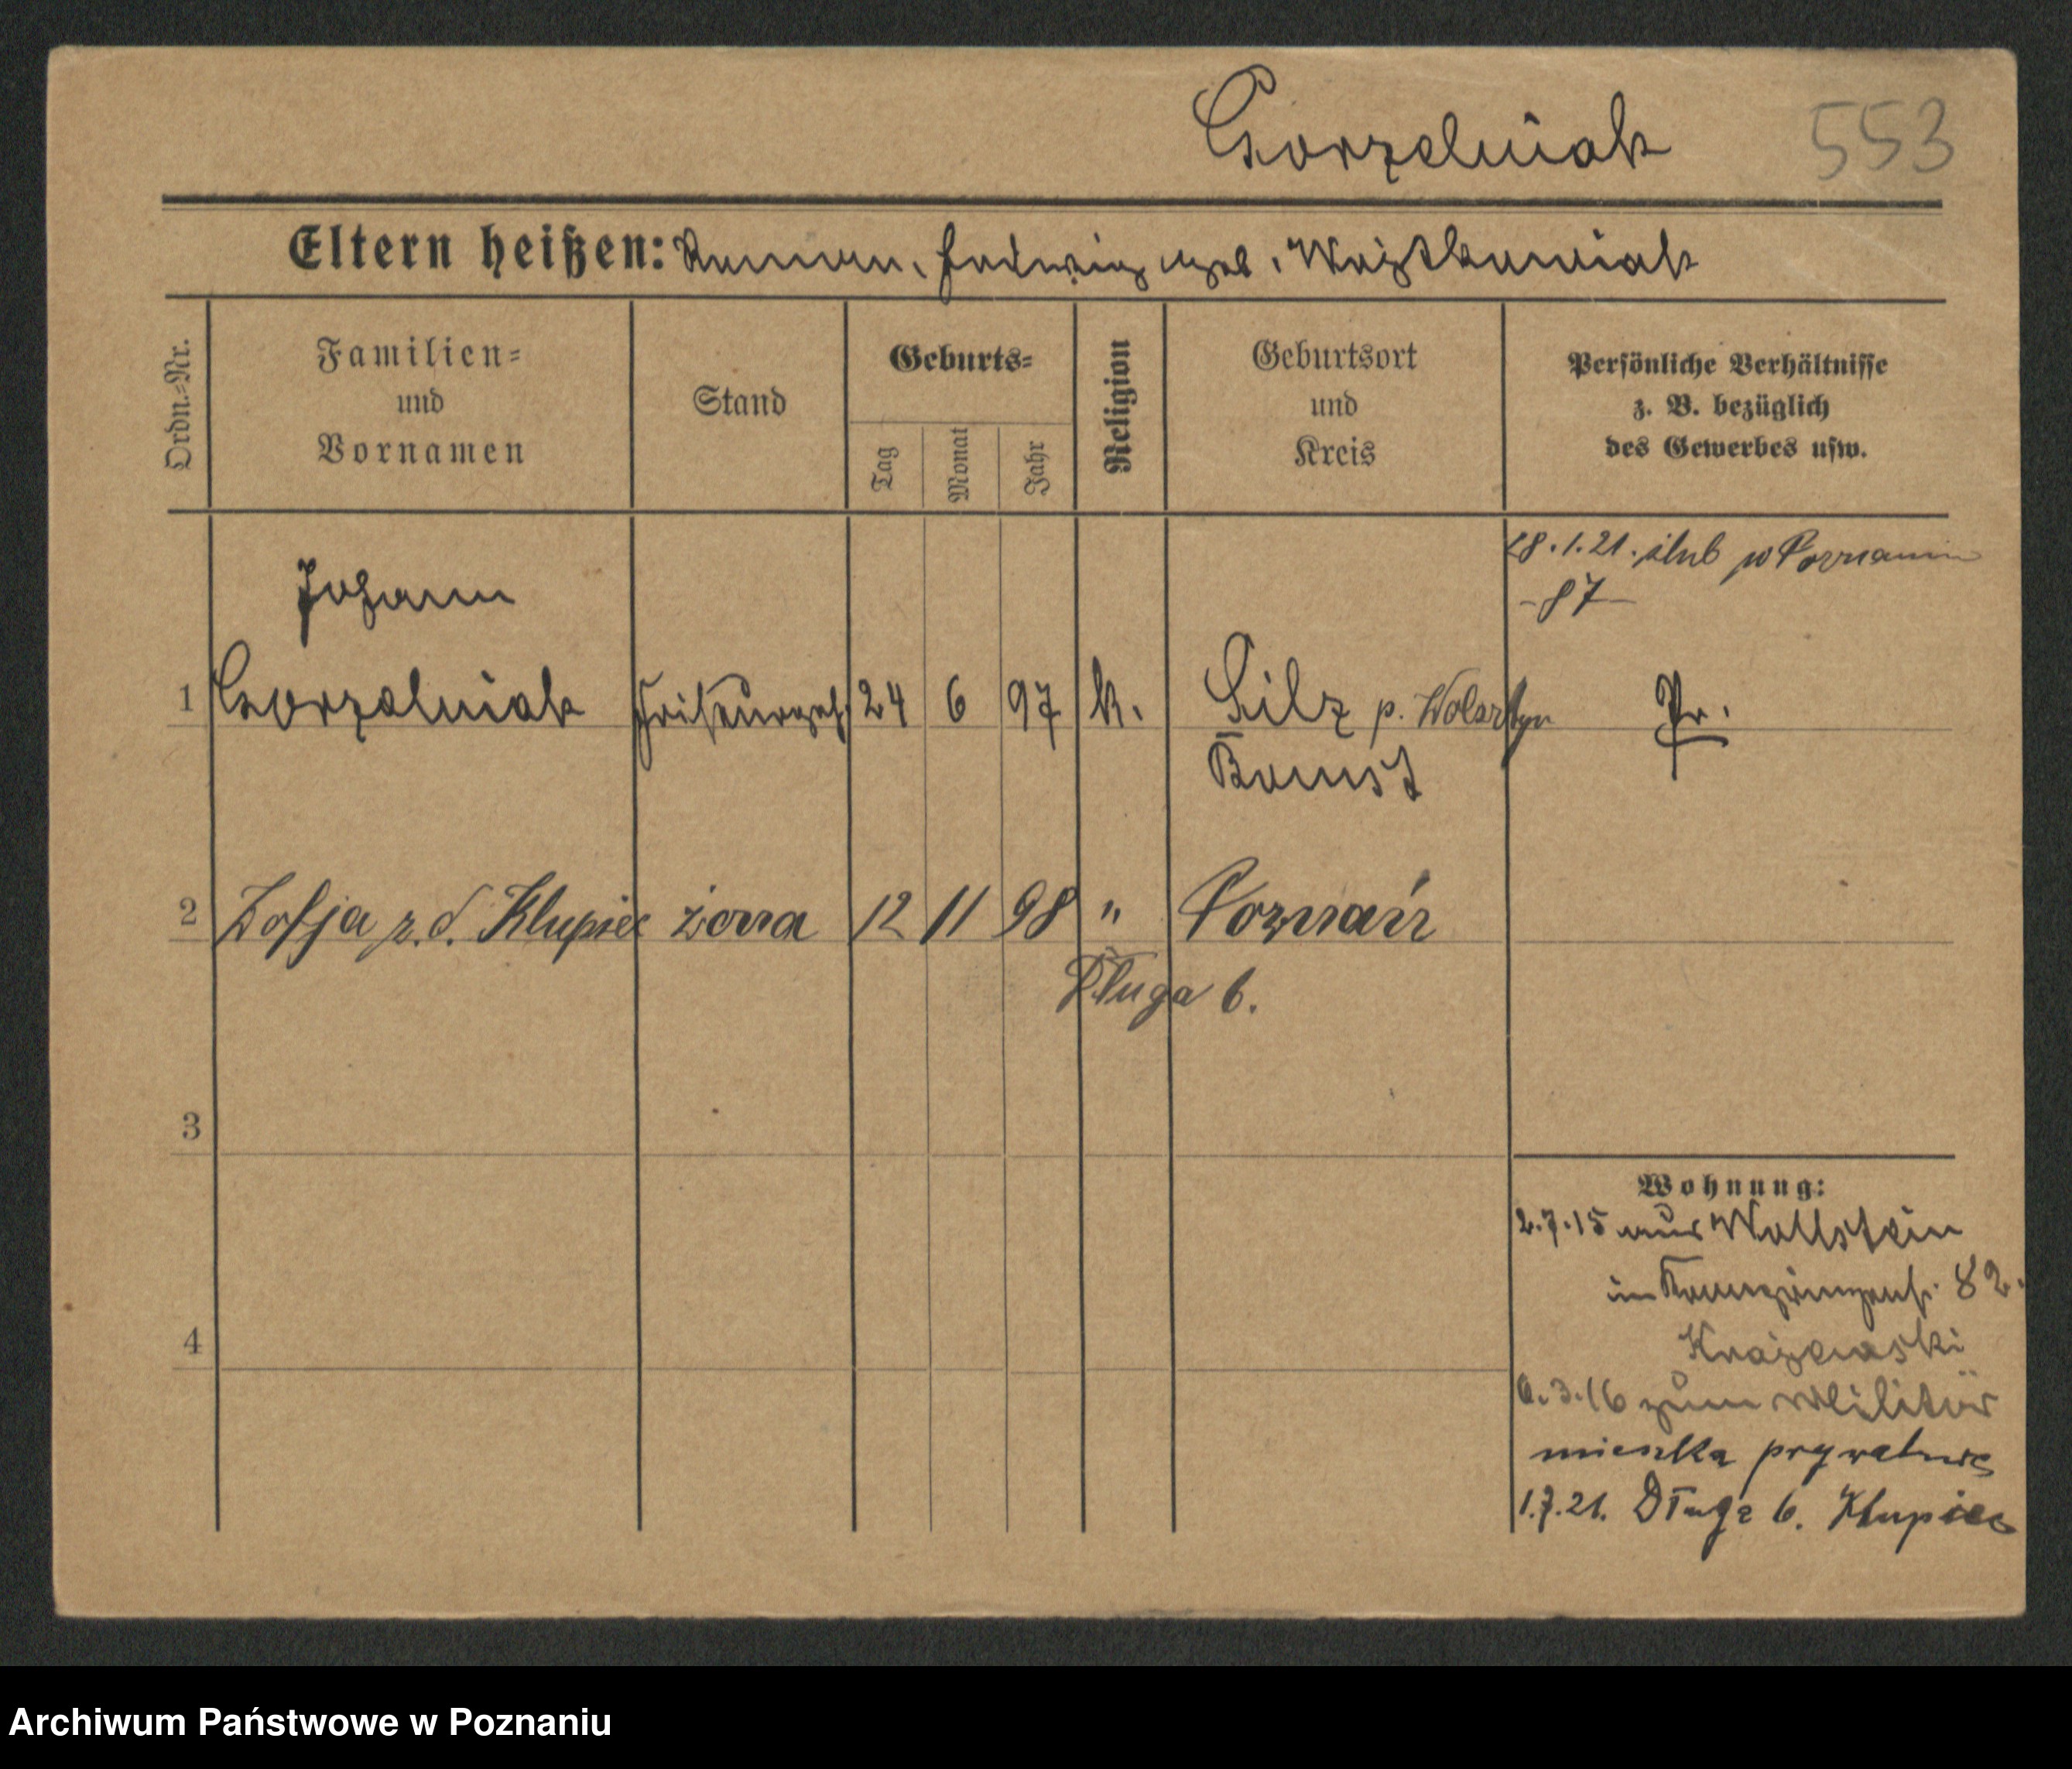 Gorzelniak 553
Eltern heißen: Roman, Hedwig geb. Wojtkowiak
Ordn.=Nr.
Familien=
und
Vornamen
Stand
Geburts=
Tag
Monat
Jahr
Religion
Geburtsort
und
Kreis
Persönliche Verhältnisse
z. B. bezüglich
des Gewerbes usw.
28.1.21. ślub w Poznaniu
-87-
Johann
1 Gorzelniak Friseurgeh. 24 6 97 k. p. Wolsztyn Pr.
Bomst
2 Zofja z.d. Klupiec żona 12 11 98 " Poznań
Długa 6.
3
Wohnung:
2.7.15 aus Wollstein
in 82.
4
Krajewski
3.16 zum Militär
mieszka prywatnie
1.7.21. Długa 6. Kłupiec
Archiwum Państwowe w Poznaniu